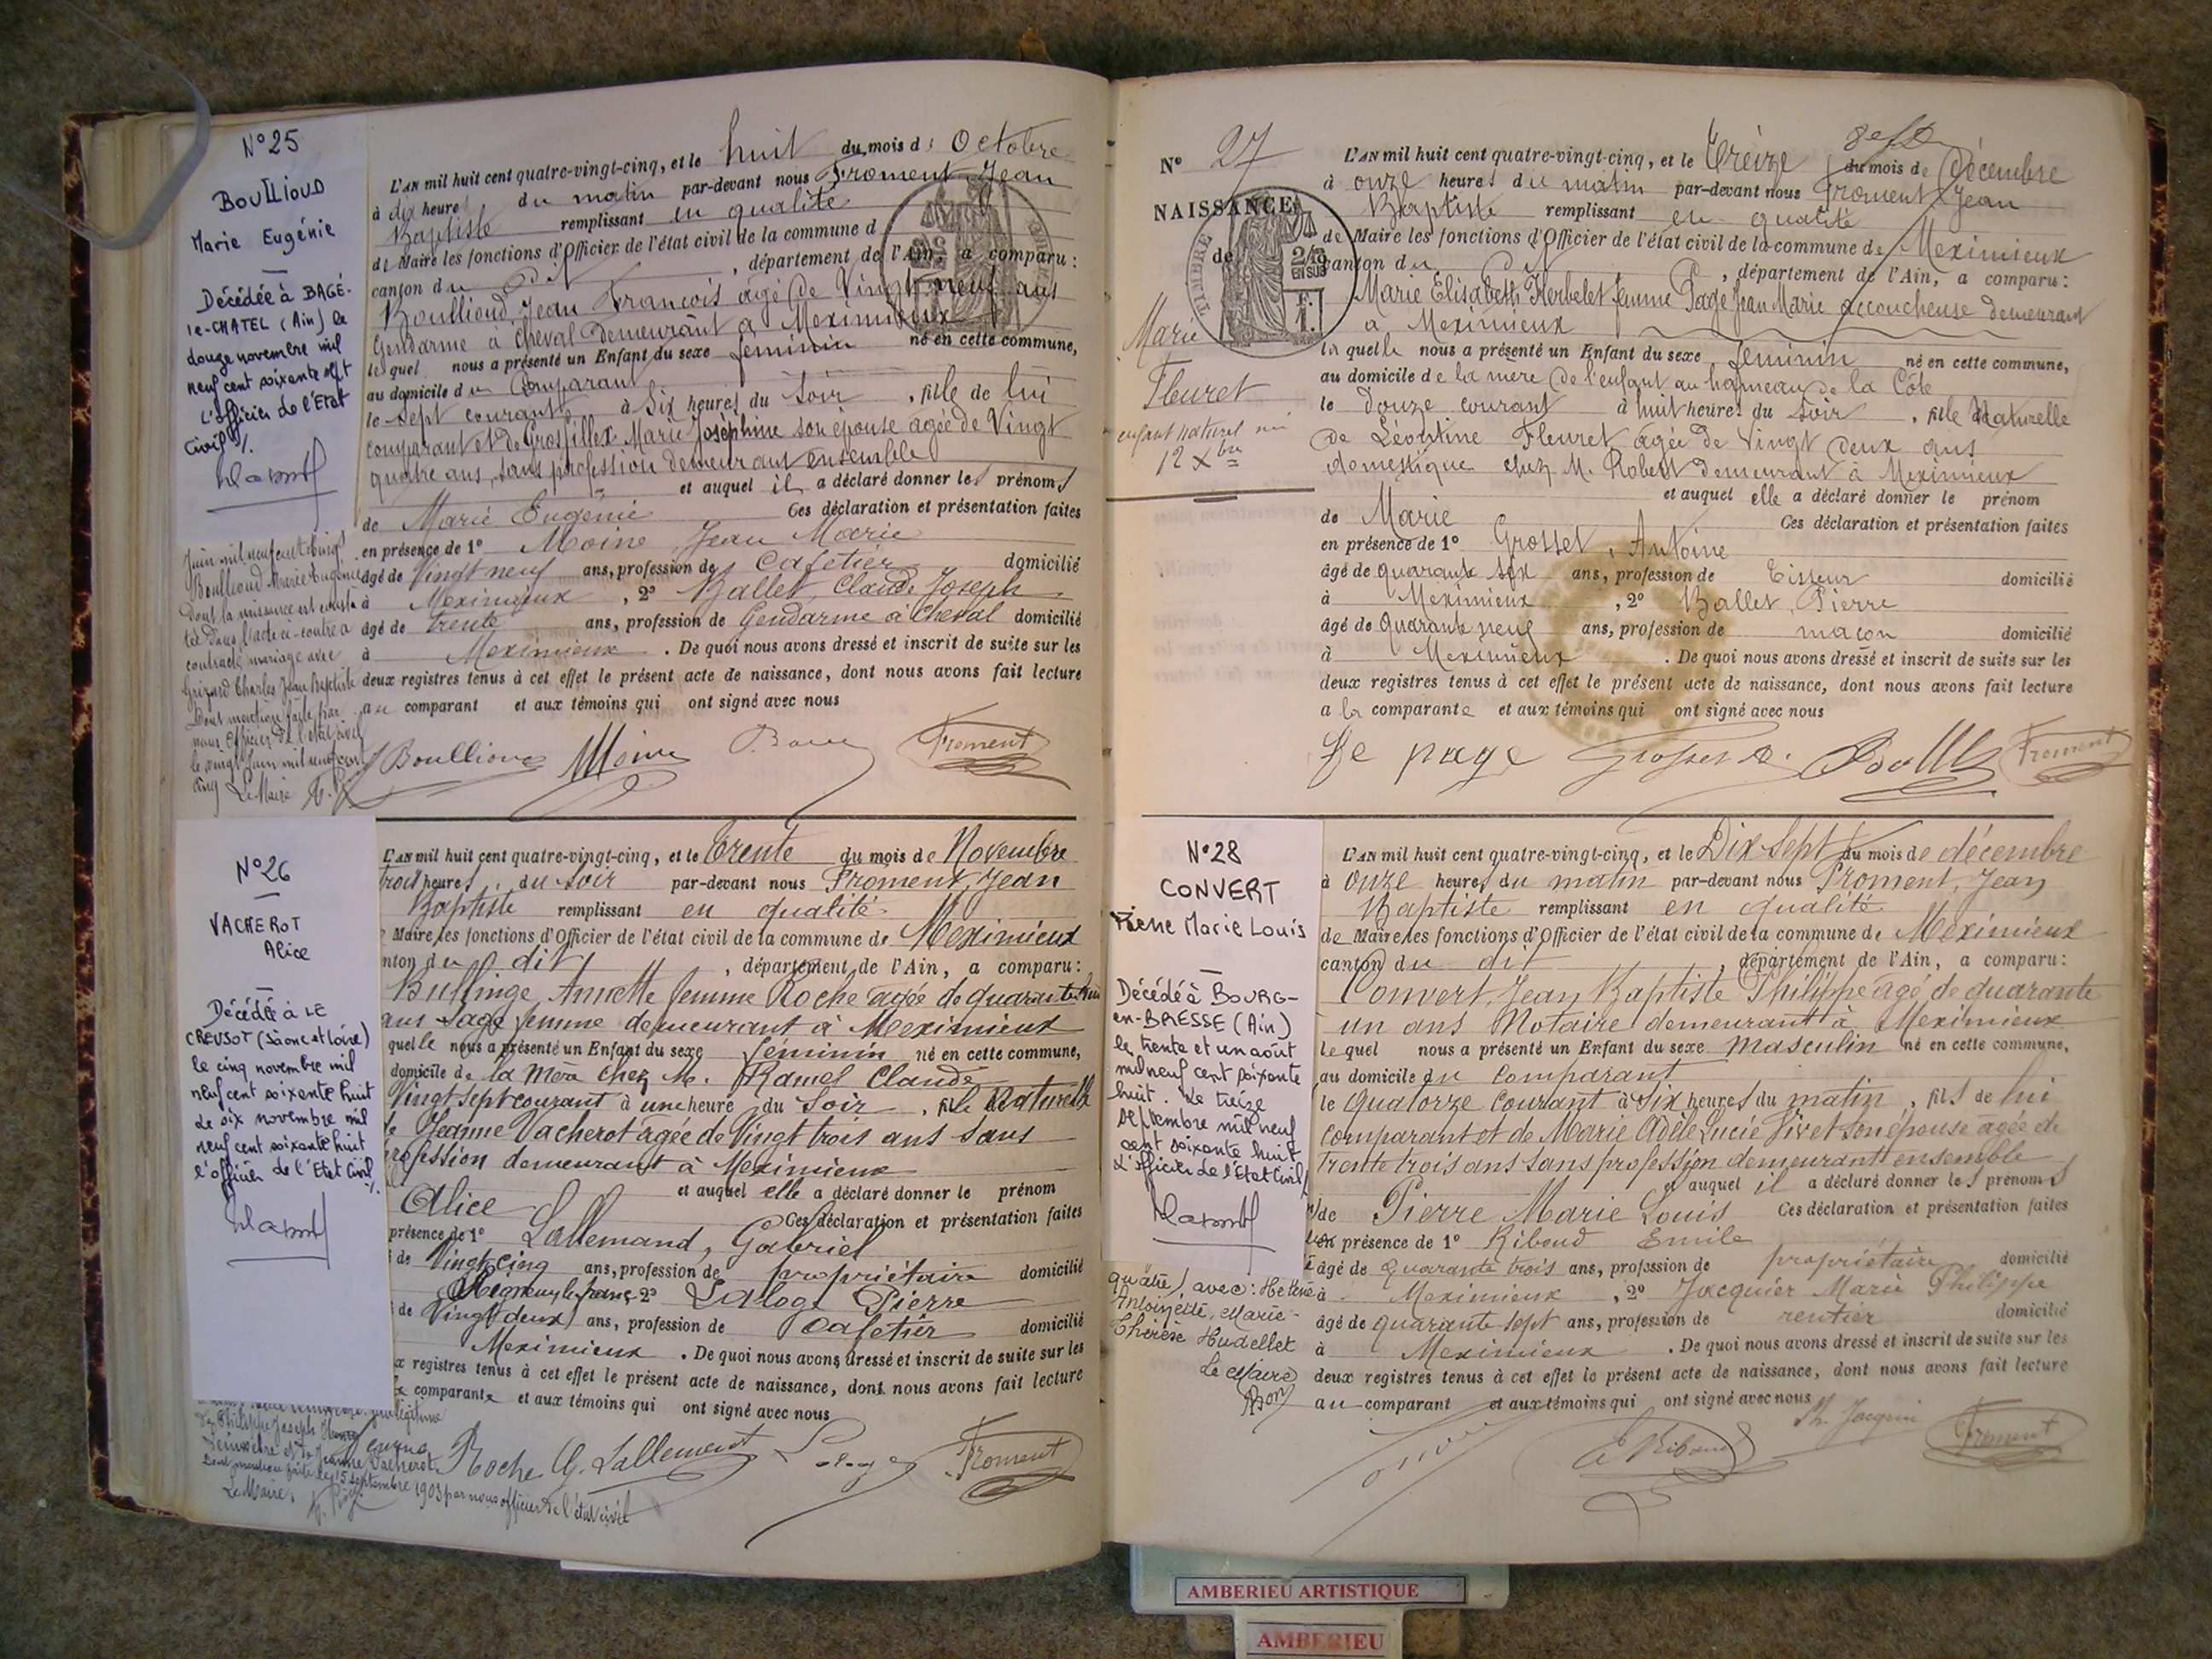 N° 25
BOULLIOUD
Marie Eugénie
Décédée à BAGÉ-
le-CHATEL (Ain) le
douze novembre mil
neuf cent soixante sept
L'officier de l'Etat
Civil %.
L'AN mil huit cent quatre-vingt-cinq, et le huit du mois d Octobre
à dix heures du matin par-devant nous Froment Jean
Baptiste remplissant en qualité
de Maire les fonctions d'Officier de l'état civil de la commune d
canton du dit , département de l'Ain, a comparu :
Boullioud, Jean François agé de Vingt neuf ans
Gendarme à cheval demeurant à Meximieux
lequel nous a présenté un Enfant du sexe féminin né en cette commune,
au domicile du Comparant
le sept courant à six heures du soir , fille de lui
comparant et de Grosfillex Marie Joséphine son épouse agée de Vingt
quatre ans, sans profession demeurant ensemble
et auquel il a déclaré donner les prénoms
de Marie Eugénie Ces déclaration et présentation faites
en présence de 1° Moine Jean Marie
âgé de Vingt neuf ans, profession de Cafetier domicilié
à Meximieux , 2° Ballet Claude Joseph
âgé de trente ans, profession de Gendarme à Cheval domicilié
à Meximieux . De quoi nous avons dressé et inscrit de suite sur les
deux registres tenus à cet effet le présent acte de naissance, dont nous avons fait lecture
au comparant et aux témoins qui ont signé avec nous
Boullioud Moine Froment
Juin mil neuf cent cinq
Boullioud Marie Eugénie
dont la naissance est consta
tée dans l'acte ci-contre a
contracté mariage avec
Grizard Charles Jean Baptiste
Dont mention faite par
nous Officier de l'état civil
le vingt Juin mil neuf cent
cinq Le Maire
N° 26
VACHEROT
Alice
Décédée à LE
CREUSOT (Saône et Loire)
le cinq novembre mil
neuf cent soixante huit
Le six novembre mil
neuf cent soixante huit
l'officier de l'Etat Civil %.
L'AN mil huit cent quatre-vingt-cinq, et le Trente du mois de Novembre
trois heures du soir par-devant nous Froment Jean
Baptiste remplissant en qualité
Maire les fonctions d'Officier de l'état civil de la commune de Meximieux
nton du dit , département de l'Ain, a comparu :
Buffinge Annette femme Roche agée de quarante huit
ans Sage femme demeurant à Meximieux
quelle nous a présenté un Enfant du sexe féminin né en cette commune,
domicile de la Mère chez M. Ramel Claude
Vingt sept courant à une heure du Soir , fille Naturelle
de Jeanne Vacherot agée de Vingt trois ans sans
profession demeurant à Meximieux
et auquel elle a déclaré donner le prénom
Alice Ces déclaration et présentation faites
présence de 1° Lallemand, Gabriel
de Vingt cinq ans, profession de propriétaire domicilié
Rigneux le franc 2° Laloge Pierre
de Vingt deux ans, profession de Cafetier domicilié
Meximieux . De quoi nous avons dressé et inscrit de suite sur les
x registres tenus à cet effet le présent acte de naissance, dont nous avons fait lecture
comparante et aux témoins qui ont signé avec nous
Roche G. Lallemand Laloge Froment
Jeanne Vacherot
Dont mention faite le 15 septembre 1903 par nous officier de l'état civil
Le Maire,
N° 27
NAISSANCE
de
Marie
Fleuret
enfant naturel né
12 Xbre
TIMBRE
2/10
EN SUS
1 F.
L'AN mil huit cent quatre-vingt-cinq, et le Treize du mois de décembre
à onze heures du matin par-devant nous Froment Jean
Baptiste remplissant en qualité
de Maire les fonctions d'Officier de l'état civil de la commune de Meximieux
canton du dit , département de l'Ain, a comparu :
Marie Elisabeth Herbelet femme Page Jean Marie accoucheuse demeurant
à Meximieux
laquelle nous a présenté un Enfant du sexe féminin né en cette commune,
au domicile de la mère de l'enfant au hameau de la Côte
le douze courant à huit heures du soir , fille Naturelle
de Léontine Fleuret agée de Vingt deux ans
domestique chez M. Robert demeurant à Meximieux
et auquel elle a déclaré donner le prénom
de Marie Ces déclaration et présentation faites
en présence de 1° Grosset, Antoine
âgé de quarante six ans, profession de Tisseur domicilié
à Meximieux , 2° Ballet, Pierre
âgé de Quarante neuf ans, profession de maçon domicilié
à Meximieux . De quoi nous avons dressé et inscrit de suite sur les
deux registres tenus à cet effet le présent acte de naissance, dont nous avons fait lecture
a la comparante et aux témoins qui ont signé avec nous
fe page Grosset A. Froment
N° 28
CONVERT
Pierre Marie Louis
Décédé à BOURG-
en-BRESSE (Ain)
le trente et un août
mil neuf cent soixante
huit. Le treize
septembre mil neuf
cent soixante huit
L'officier de l'Etat Civil
quatre), avec : Hélène
Antoinette, Marie-
Thérèse Hudellet
Le Maire
L'AN mil huit cent quatre-vingt-cinq, et le Dix Sept du mois de décembre
à onze heures du matin par-devant nous Froment, Jean
Baptiste remplissant en qualité
de Maire les fonctions d'Officier de l'état civil de la commune de Meximieux
canton du dit , département de l'Ain, a comparu :
Convert, Jean Baptiste Philippe agé de quarante
un ans Notaire demeurant à Meximieux
lequel nous a présenté un Enfant du sexe masculin né en cette commune,
au domicile du Comparant
le Quatorze courant à Six heures du matin , fils de lui
comparant et de Marie Adèle Lucie Vivet son épouse agée de
Trente trois ans sans profession demeurant ensemble
et auquel il a déclaré donner les prénoms
de Pierre Marie Louis Ces déclaration et présentation faites
en présence de 1° Riboud Emile
âgé de quarante trois ans, profession de propriétaire domicilié
à Meximieux , 2° Jacquier Marie Philippe
âgé de quarante sept ans, profession de rentier domicilié
à Meximieux . De quoi nous avons dressé et inscrit de suite sur les
deux registres tenus à cet effet le présent acte de naissance, dont nous avons fait lecture
au comparant et aux témoins qui ont signé avec nous
E Riboud Ph. Jacquier Froment
AMBERIEU ARTISTIQUE
AMBERIEU